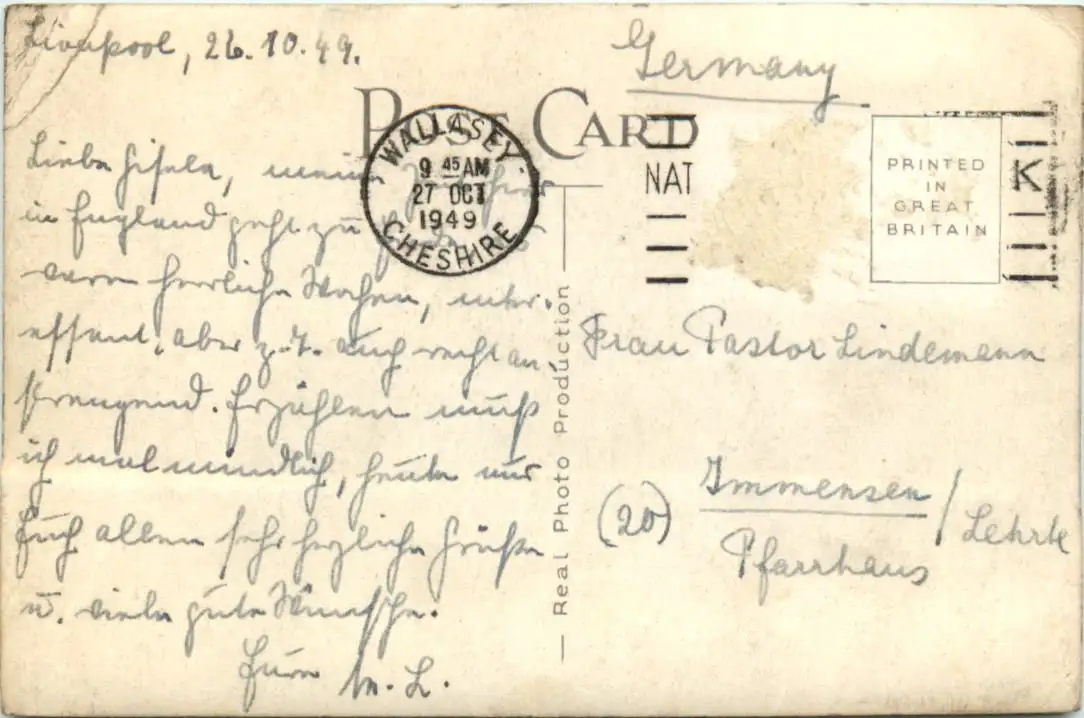 Liverpool, 26.10.49.
Liebe Gisela, meine Zeit hier
in England geht zu Ende. Es
waren herrliche Wochen, inter-
essant, aber z.T. auch recht an-
strengend. Erzählen muß
ich mal mündlich, heute nur
Euch allen sehr herzliche Grüße
u. viele gute Wünsche.
Eure M. L.
POST CARD
WALLASEY
9 45 AM
27 OCT
1949
CHESHIRE
NAT
K
PRINTED
IN
GREAT
BRITAIN
Real Photo Production
Germany
Frau Pastor Lindemann
(20) Immensen / Lehrte
Pfarrhaus